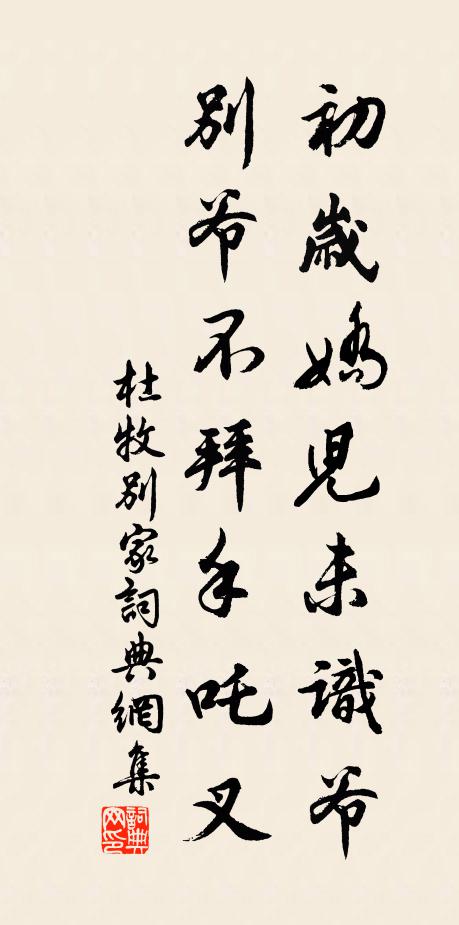 初歲嬌兒未識爷
別爷不拜手吒叉
杜牧別家詞典網集
詞典网印